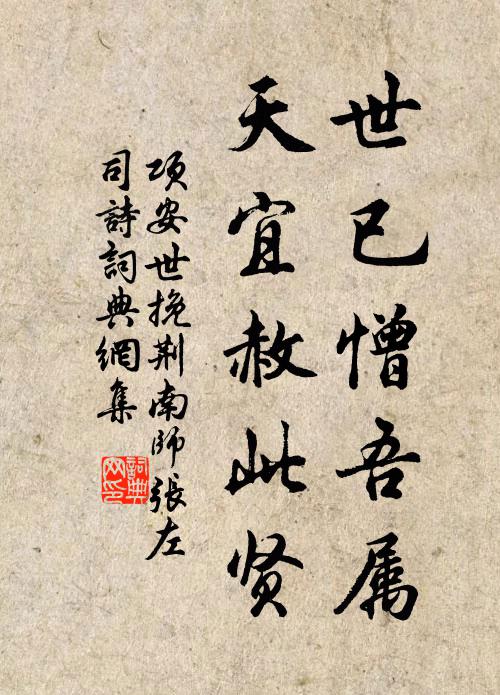 世已憎吾属
天宜赦此贤
项安世挽荆南师張左
司詩詞典網集
詞典
网印